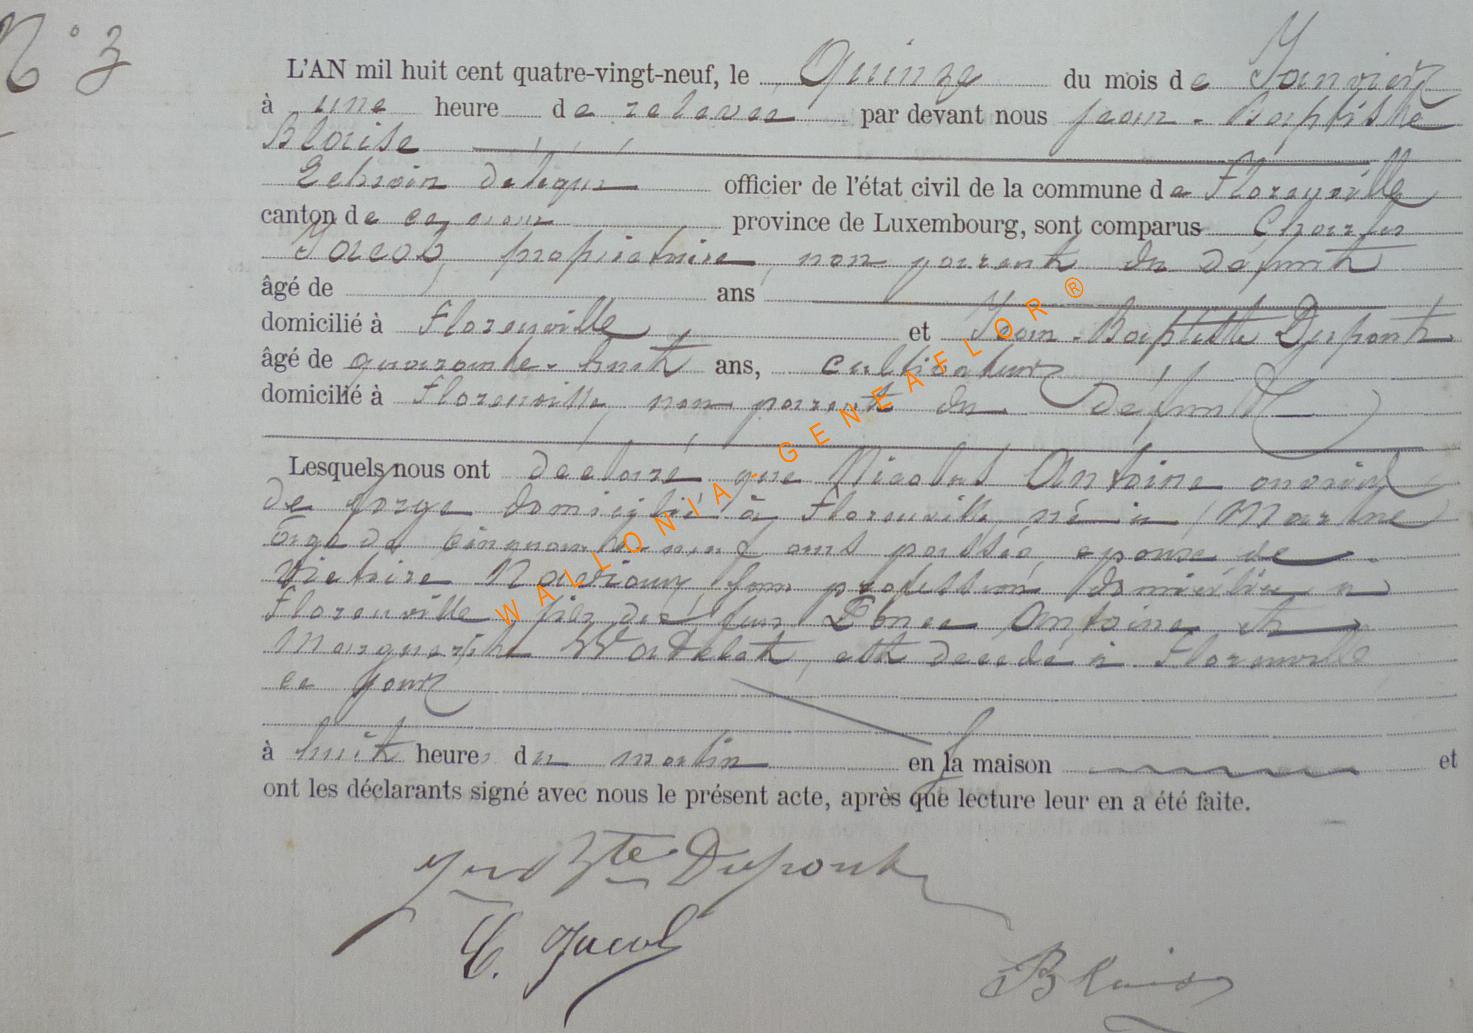 N° 3
L'AN mil huit cent quatre-vingt-neuf, le Quinze du mois de Janvier
à une heure de relevee par devant nous Jean-Baptiste
Blaise
Echevin délégué officier de l'état civil de la commune de Florenville
canton de ce nom province de Luxembourg, sont comparus Charles
Jacob, propriétaire, non parent du défunt
âgé de ans
domicilié à Florenville et Jean-Baptiste Dupont
âgé de quarante-huit ans, cultivateur
domicilié à Florenville, non parent du défunt
Lesquels nous ont déclaré que Nicolas Antoine ouvrier
de forge domicilié à Florenville, né à
âgé de cinquante neuf ans passés, epoux de
Navioux, sans profession domiciliée à
Florenville, fils des feus Antoine et
Marguerite Watelet, est decedé à Florenville
ce jour
à huit heures du matin en la maison et
ont les déclarants signé avec nous le présent acte, après que lecture leur en a été faite.
Jean Bte Dupont
C. Jacob
Blaise
WALLONIA GENEAFLOR ®